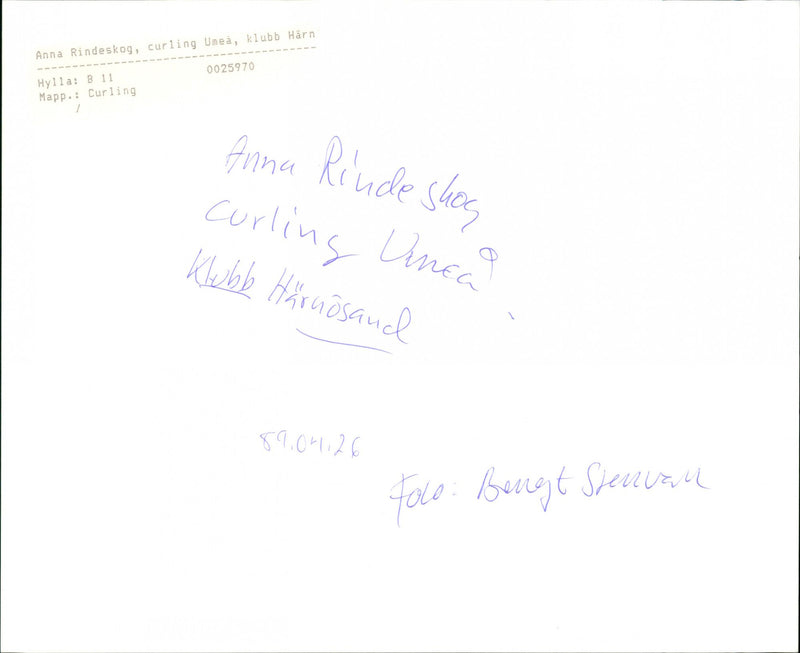 Anna Rindeskog, curling Umeå, klubb Härn
Hylla: B 11 0025970
Mapp.: Curling
/
Anna Rindeskog
Curling Umeå
Klubb Härnösand
89.04.26
Foto: Bengt Stenvall